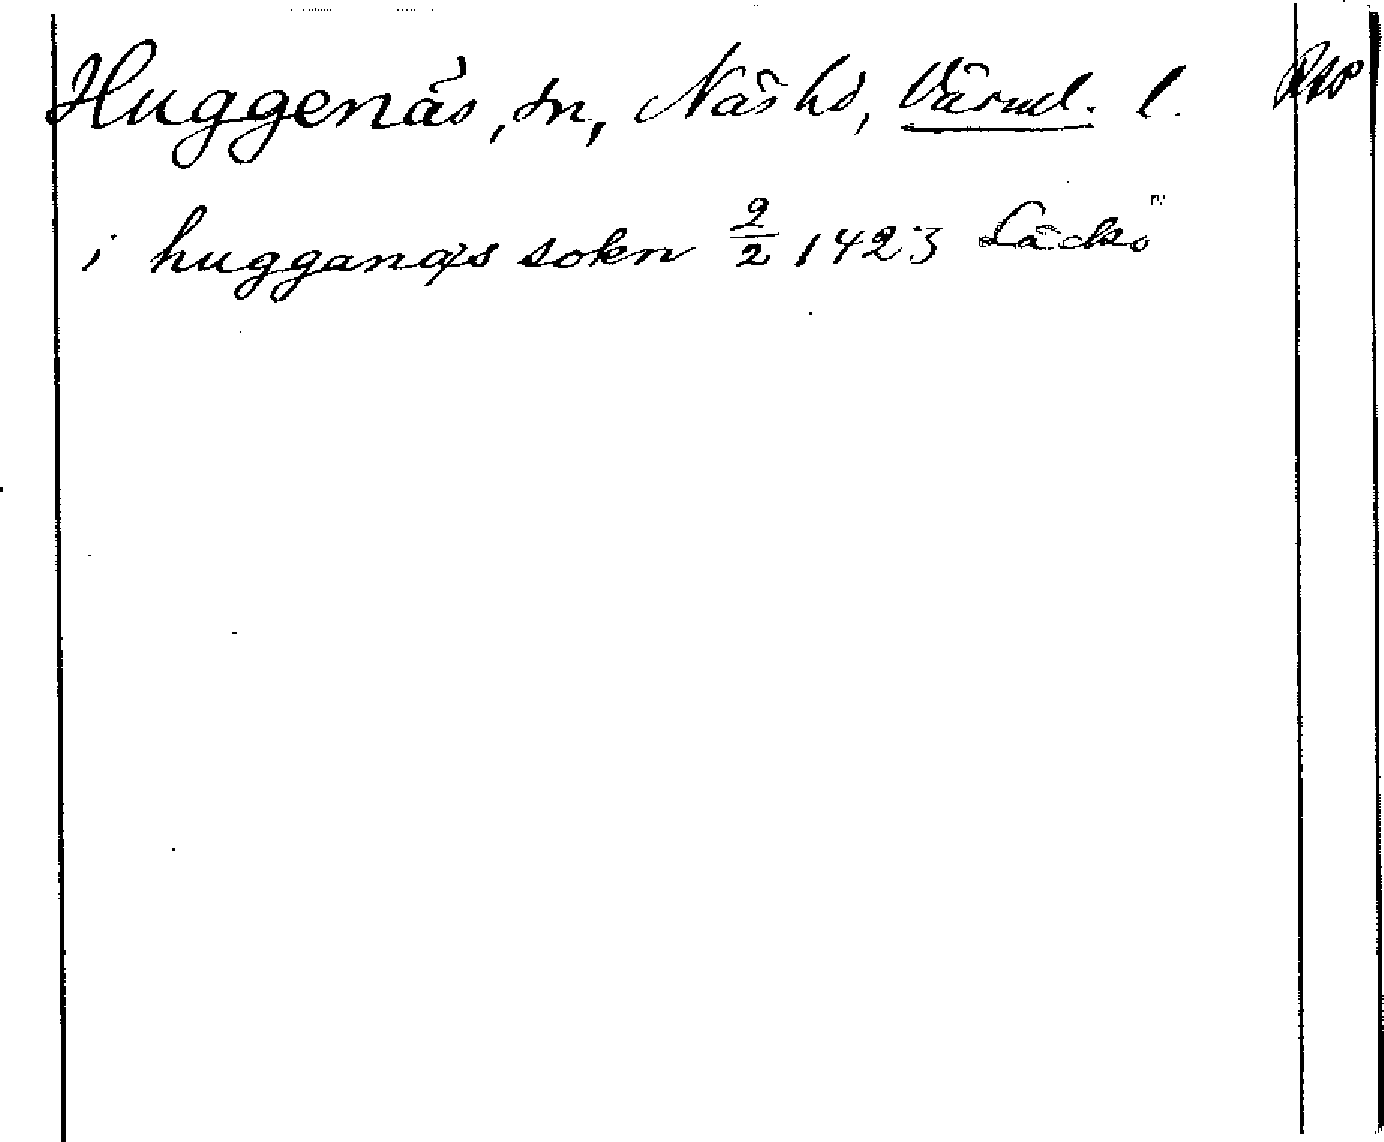 Huggenäs, sn, Näs hd, Värml. l. RAP
i hugganæs sokn 2/2 1423 Läckö